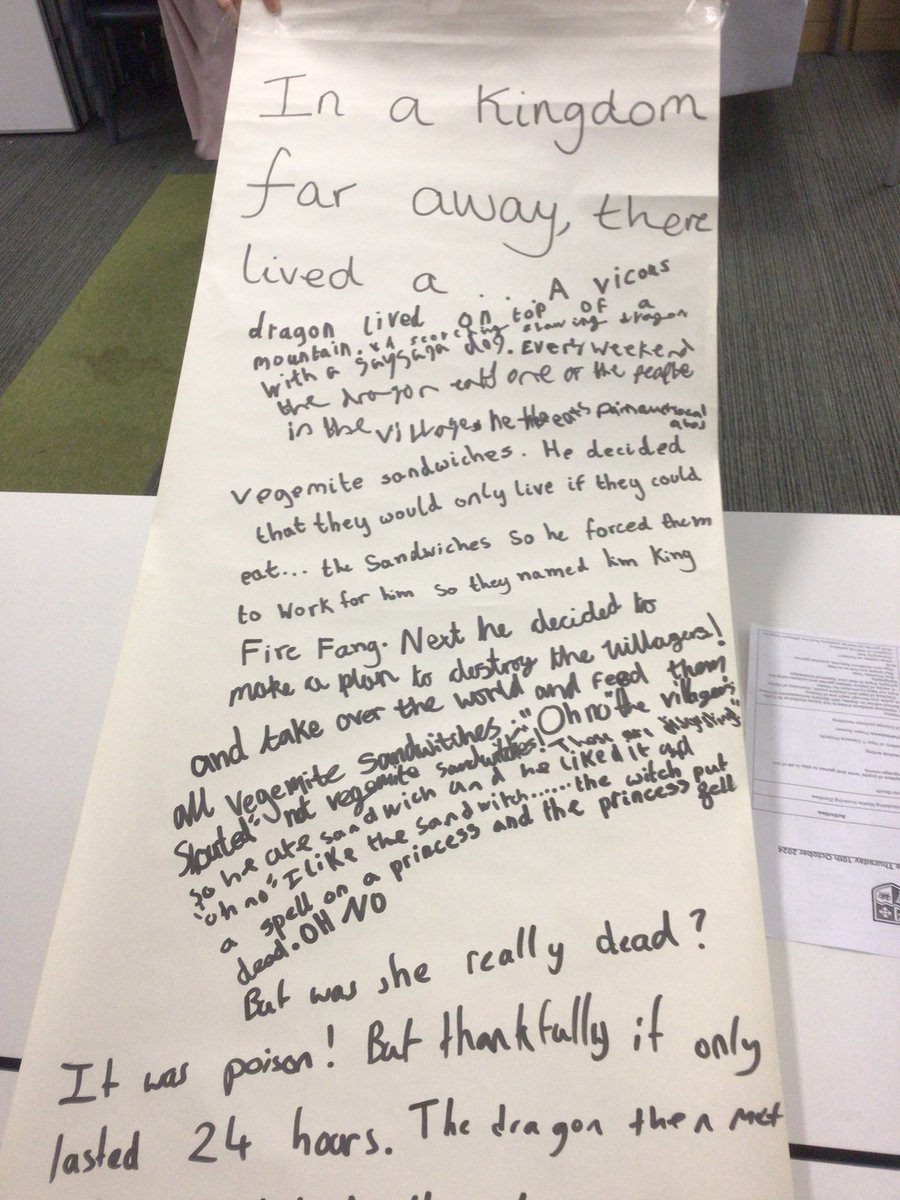 In a Kingdom
far away, there
lived a . . . A vicous
dragon lived on top of a
mountain. scorching slaming dragon
with a dog. Every weekend
the dragon eats one of the people
in the village. he eats
vegemite sandwiches. He decided
that they would only live if they could
eat... the Sandwiches so he forced them
to work for him so they named him King
Fire Fang. Next he decided to
make a plan to destroy the villagers!
and take over the world and feed them
all vegemite sandwitches. "Oh no" the villagers
Shouted" not vegemite sandwitches! These are
so he ate sandwich and he liked it ad
"oh no" I like the sandwitch......the witch put
a spell on a princess and the princess fell
dead. OH NO
But was she really dead?
It was poison! But thankfully it only
lasted 24 hours. The dragon then met
Thursday 10th October 2024
Activities